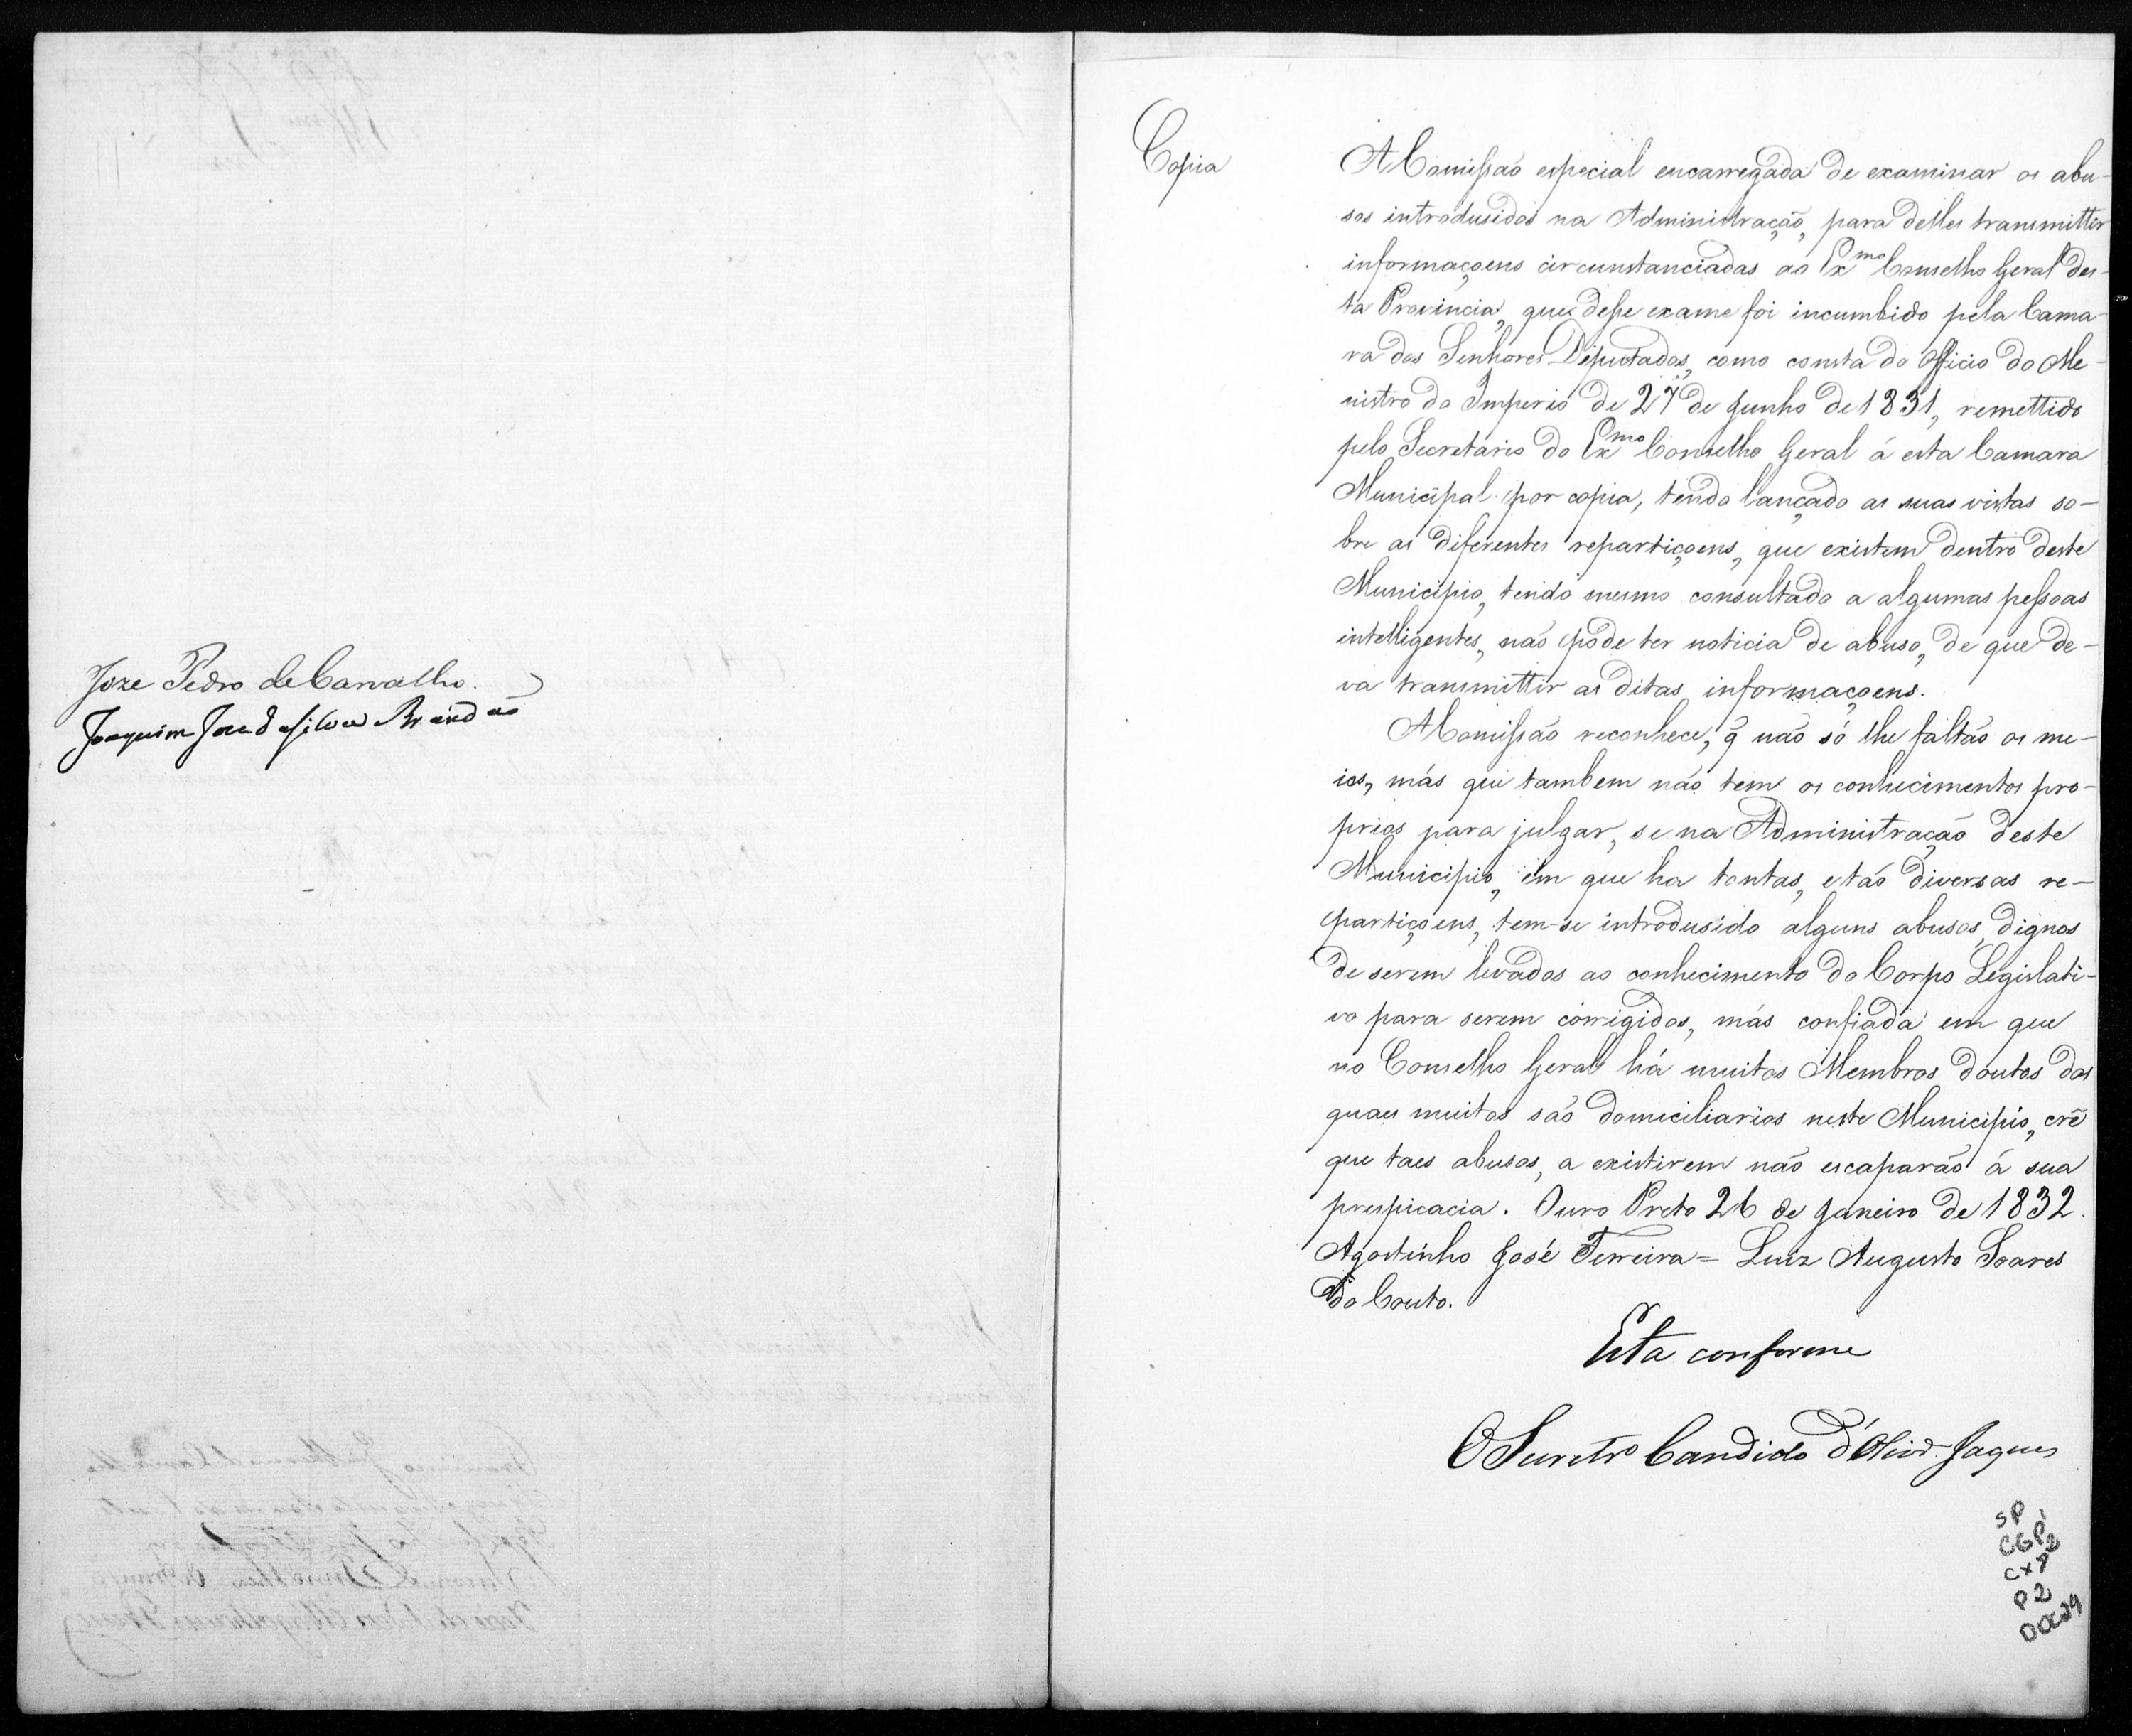 Joze Pedro de Carvalho.
Joaquim Joze da Silva Brandão
Copia
A Comissaõ especial encarregada de examinar os abu-
sos introdusidos na Administraçaõ, para delles transmittir
informaçoens circunstanciadas ao Exmo Conselho Geral des-
ta Provincia, que desse exame foi incumbido pela Cama-
ra dos Senhores Deputados, como consta do Officio do Me-
nistro do Imperio de 27 de Junho de 1831, remettido
pelo Secretario do Exmo Conselho Geral á esta Camara
Municipal por copia, tendo lançado as suas vistas so-
bre as diferentes repartiçoens, que existem dentro deste
Municipio, tendo mesmo consultado a algumas pessoas
intelligentes, naõ pôde ter noticia de abuso, de que de-
va transmittir as ditas informaçoens.
A Comissaõ reconhece, q̃ naõ só lhe faltaõ os me-
ios, más que tambem naõ tem os conhecimentos pro-
prios para julgar, se na Administraçaõ deste
Municipio, em que ha tantas, e taõ diversas re-
partiçoens, tem-se introdusido alguns abusos, dignos
de serem levados ao conhecimento do Corpo Legislati-
vo para serem corrigidos, más confiada em que
no Conselho Geral há muitos Membros doutos dos
quaes muitos saõ domiciliarios neste Municipio, crê
que taes abusos, a existirem naõ escaparáõ á sua
prespicacia. Ouro Preto 26 de Janeiro de 1832.
Agostinho José Ferreira = Luiz Augusto Soares
do Couto.
Esta conforme
O Secretro Candido d'Olivra Jaques
SP
CGP1
CX 2
P2
DOC 29